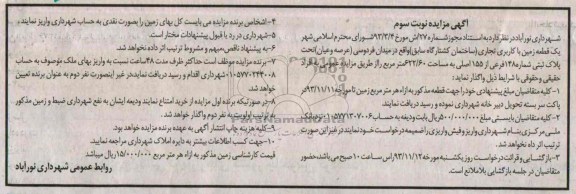 آگهی مزایده نوبت سوم
شهرداری نورآباد در نظر دارد به استناد مجوز شماره ۲۷/ش مورخ ۹۳/۳/۴ شورای محترم اسلامی شهر
یک قطعه زمین با کاربری تجاری (ساختمان کشتارگاه سابق) واقع در میدان فردوسی (عرصه و عیان) تحت
پلاک ثبتی شماره ۱۴۸ فرعی از ۱۵۵ اصلی به مساحت ۶۲۲/۶۰ متر مربع را از طریق مزایده
حقیقی و حقوقی با شرایط ذیل واگذار نماید:
۱- کلیه متقاضیان مبلغ پیشنهادی خود را جهت قطعه مذکور به ازاء هر متر مربع زمین تا مورخه ۹۳/۱۱/۱۱ در
پاکت سر بسته تحویل دبیرخانه شهرداری نموده و رسید دریافت نمایند.
۲- کلیه متقاضیان بایستی مبلغ ۵۰۰/۰۰۰/۰۰۰ ریال بابت ودیعه به حساب ۰۱۰۵۷۷۱۳۰۷۰۰۶ نزد بانک
ملی مرکزی بنام شهرداری واریز و فیش واریزی را ضمیمه درخواست خود نمایند در غیر این صورت
ترتیب اثر داده نخواهد شد.
۳- بازگشایی و قرائت درخواست روز یکشنبه مورخه ۹۳/۱۱/۱۲ راس ساعت ۱۰ صبح می باشد، حضور
متقاضیان در جلسه بازگشایی بلامانع است.
۴- اشخاص برنده مزایده می بایست کل بهای زمین را بصورت نقدی به حساب شهرداری واریز نمایند.
۵- شهرداری در رد یا قبول پیشنهادات مختار است.
۶- به پیشنهاد ناقص، مبهم و مشروط ترتیب اثر داده نخواهد شد.
۷- برنده مزایده موظف است حداکثر ظرف مدت ۴۸ ساعت نسبت به واریز بهای ملک موصوف به حساب
۰۱۰۵۷۷۰۲۴۴۰۰۸ شهرداری اقدام و رسید دریافت نماید در غیر اینصورت نفر دوم به عنوان برنده تعیین
خواهد شد.
۸- در صورتیکه برنده اول مزایده از خرید امتناع نمایند ودیعه ایشان به نفع شهرداری ضبط و زمین مذکور
به ترتیب اولویت به نفر دوم واگذار خواهد شد.
۹- کلیه هزینه چاپ انتشار آگهی به عهده برنده مزایده خواهد بود.
۱۰- جهت کسب اطلاعات بیشتر به دایره املاک شهرداری مراجعه نمایید.
قیمت کارشناسی زمین مذکور به ازاء هر متر مربع ۱۵/۰۰۰/۰۰۰ ریال میباشد
روابط عمومی شهرداری نورآباد